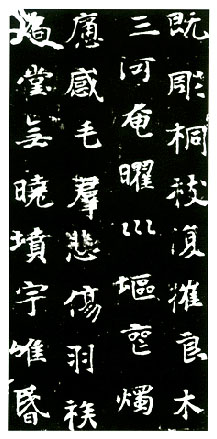 既彫桐枝復摧良木
三河奄曜巛塸喪燭
痛感毛羣悲傷羽族
扃堂无曉墳宇唯昏